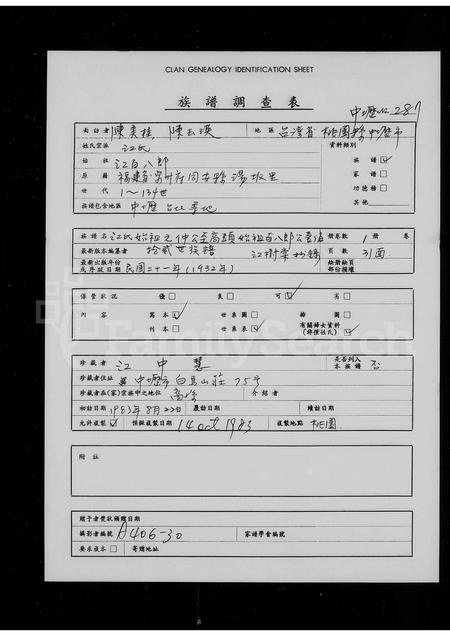 CLAN GENEALOGY IDENTIFICATION SHEET
族譜調查表
中壢 287
面訪者 陳美桂, 陳玉瑛 地區 台灣省桃園縣中壢市
姓氏宗派 江氏 資料類別
始祖 江百八郎 族譜 ✓
原籍 福建省 府同安縣湯坂里 家譜
世代 1~134世 功德榜
族譜包含地區 中壢 台北等地 其他
族譜名 江氏始祖元仲公至高頭始祖百八郎公 冊卷數 1 冊 卷
最新版本編纂者 拾貳世族譜 江樹 抄錄 頁數 31面
最新出版年份或序跋日期 民國二十一年(1932年) 缺冊缺頁部份損壞
保管狀況 優 良 可 ✓ 劣
內容 寫本 ✓ 世系圖 繪圖
刊本 世系表 ✓ 有關婦女資料(非僅姓氏)
珍藏者 江中慧 是否列入本族譜 否
珍藏者住址 中壢市白馬山莊75号
珍藏者在(家)宗族中之地位 裔孫 介紹者
初訪日期 1983年8月22日 覆訪日期 續訪日期
允許複製 ✓ 課攝複製日期 14 oct 1983 複製地點 桃園
附註
贈予者獎狀頒贈日期
攝影者編號 A406-30 家譜學會編號
要求複本 寄贈地址
FamilySearch